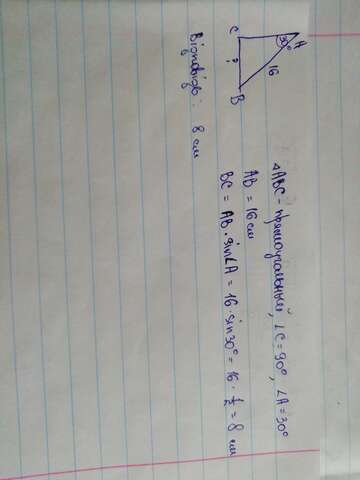 C
A
30°
16
?
B
△ABC - прямоугольный, ∠C = 90°, ∠A = 30°
AB = 16 см
BC = AB · sin∠A = 16 · sin30° = 16 · 1/2 = 8 см
Відповідь: 8 см